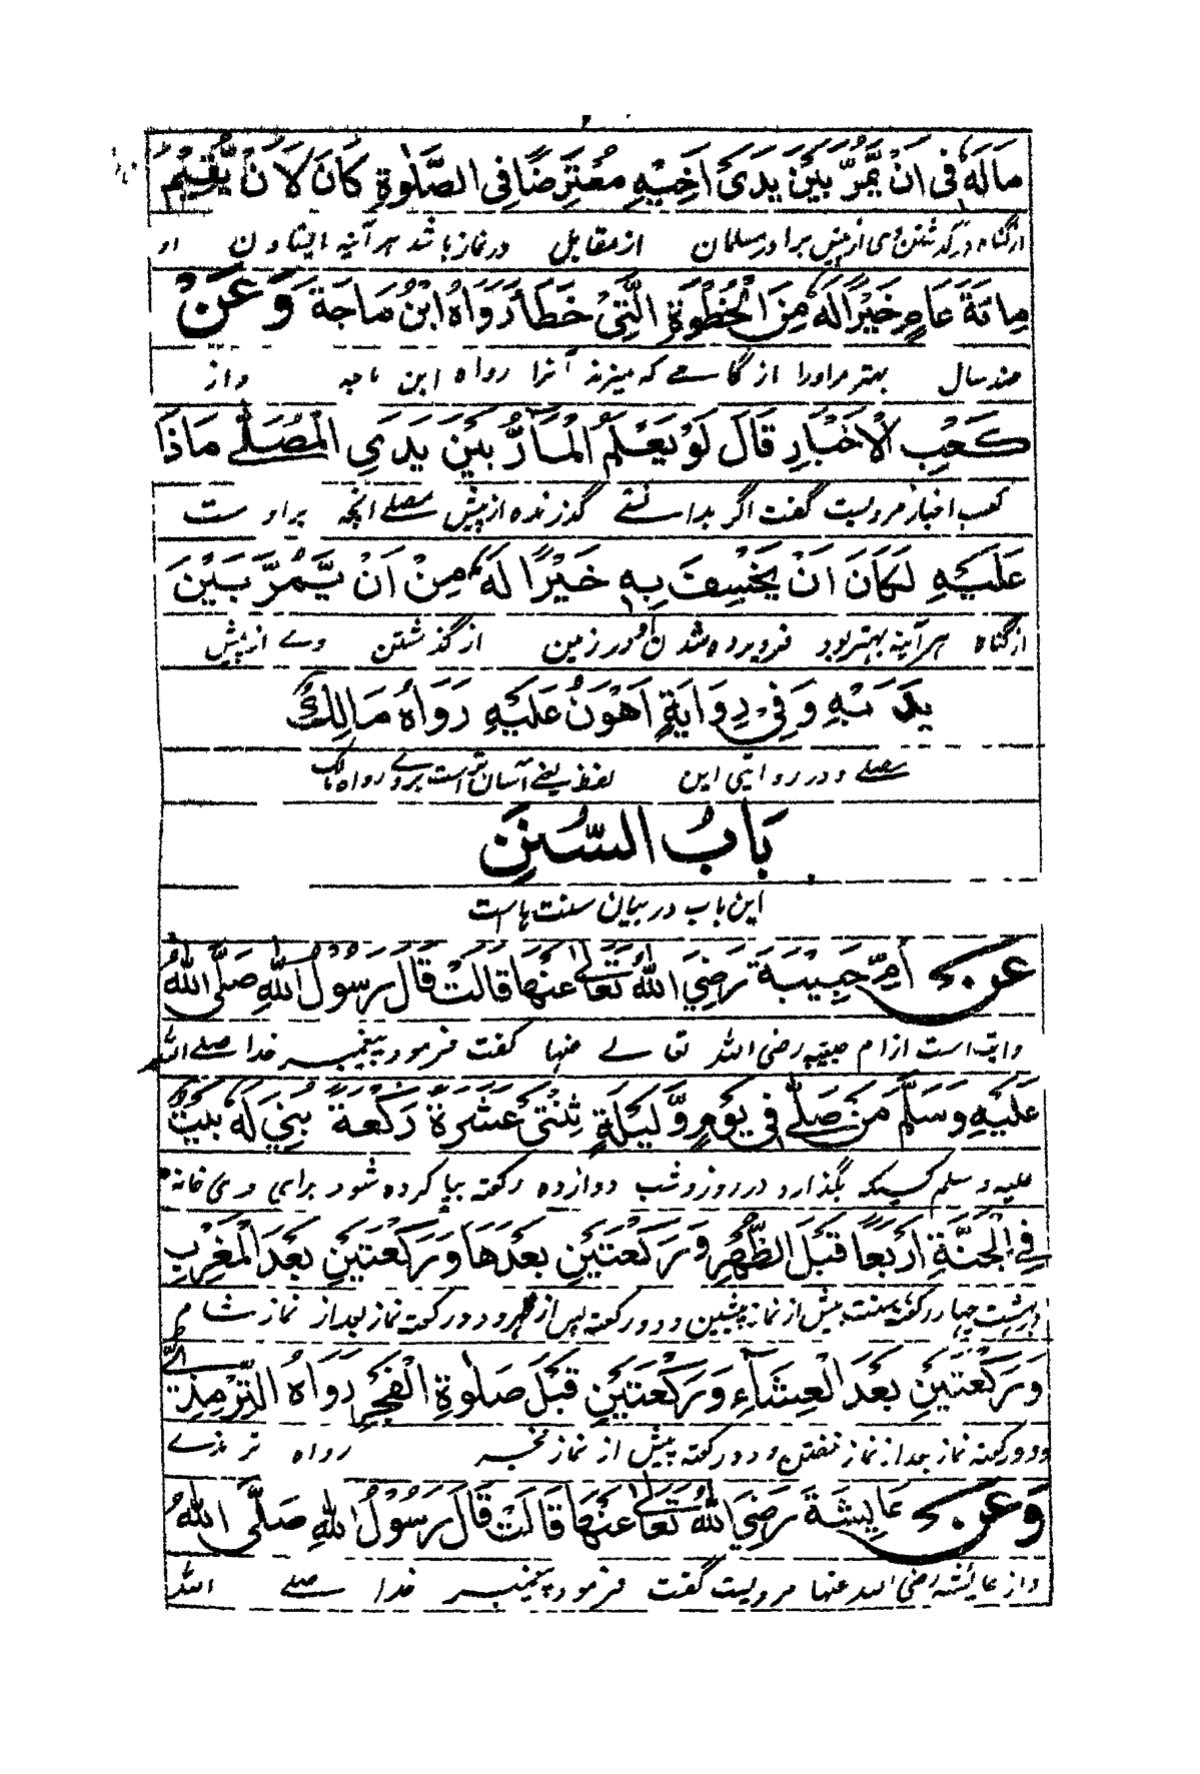 مَالَهٗ فِی اَنْ یَّمُرَّ بَیْنَ یَدَیْ اَخِیْهِ مُعْتَرِضًا فِی الصَّلٰوةِ كَانَ لَاَنْ یُّقِیْمَ
ازگناه درگذشتن وی از پیش برادر مسلمان از مقابل در نماز باشد هر آئینه ایستادن او
مِائَةَ عَامٍ خَیْرًا لَهٗ مِنَ الْخُطْوَةِ الَّتِیْ خَطَا رَوَاهُ ابْنُ مَاجَةَ وَعَنْ
صد سال بهتر مر اورا از گامے که میزند آنرا رواه ابن ماجه واز
كَعْبِ الْاَحْبَارِ قَالَ لَوْ یَعْلَمُ الْمَارُّ بَیْنَ یَدَیِ الْمُصَلِّے مَاذَا
کعب احبار مرویست گفت اگر بدانستے گذرنده از پیش مصلے انچه براوست
عَلَیْهِ لَكَانَ اَنْ یُّخْسَفَ بِهٖ خَیْرًا لَهٗ مِنْ اَنْ یَّمُرَّ بَیْنَ
ازگناه هر آئینه بهتر بود فروبرده شدن در زمین از گذشتن وے از پیش
یَدَیْهِ وَفِیْ رِوَایَةٍ اَهْوَنُ عَلَیْهِ رَوَاهُ مَالِكٌ
مصلے و در روایتی این لفظ یعنے آسان تر است بروے رواه مالک
بَابُ السُّنَنِ
این باب در بیان سنت هااست
عَنْ اُمِّ حَبِیْبَةَ رَضِیَ اللّٰهُ تَعَالٰے عَنْهَا قَالَتْ قَالَ رَسُوْلُ اللّٰهِ صَلَّی اللّٰهُ
روایت است از ام حبیبه رضی الله تعالے عنها گفت فرمود پیغمبر خدا صلے الله
عَلَیْهِ وَسَلَّمَ مَنْ صَلّٰے فِی یَوْمٍ وَّلَیْلَةٍ ثِنْتَیْ عَشْرَةَ رَكْعَةً بُنِیَ لَهٗ بَیْتٌ
علیه وسلم کسیکه بگذارد در روز و شب دوازده رکعته بپا کرده شود برای وی خانه
فِی الْجَنَّةِ اَرْبَعًا قَبْلَ الظُّهْرِ وَرَكْعَتَیْنِ بَعْدَهَا وَرَكْعَتَیْنِ بَعْدَ الْمَغْرِبِ
در بهشت چهار رکعته سنت پیش از نماز پیشین و دو رکعته پس از ظهر و دو رکعته نماز بعد از نماز شام
وَرَكْعَتَیْنِ بَعْدَ الْعِشَآءِ وَرَكْعَتَیْنِ قَبْلَ صَلٰوةِ الْفَجْرِ رَوَاهُ التِّرْمِذِیُّ
ودورکعته نماز بعد از نماز خفتن و دورکعته پیش از نماز فجر رواه ترمذے
وَعَنْ عَایِشَةَ رَضِیَ اللّٰهُ تَعَالٰے عَنْهَا قَالَتْ قَالَ رَسُوْلُ اللّٰهِ صَلَّی اللّٰهُ
واز عائشه رضی الله عنها مرویست گفت فرمود پیغمبر خدا صلے الله